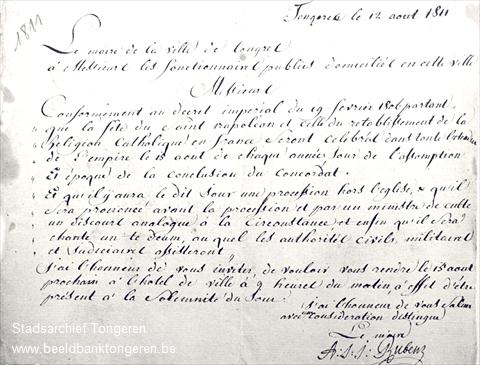 1811
Tongres le 12 aout 1811
Le maire de la ville de tongres
à Messieurs les fonctionnaires publics domiciliés en cette ville
Messieurs
Conformement au decret imperial du 19 fevrier 1806 portant,
que la fête du saint napoléon et celle du retablissement de la
Religion Catholique en france seront celebrés dans toute l'etendue
de l'empire le 15 aout de chaque année jour de l'assomption
Et époque de la conclusion du concordat.
Et qu'il y aura le dit jour une procession hors l'eglise, & qu'il
sera prononcé avant la procession et par un ministre de culte
un discours analogue à la circonstance et enfin qu'il sera
chanté un te deum, au quel les authorités civils, militaires
et judiciaires assisteront
J'ai l'honneur de vous inviter, de vouloir vous rendre le 15 aout
prochain à l'hotel de ville à 9 heures du matin à effet d'être
présent à la solemnité du jour.
J'ai l'honneur de vous saluer
avec consideration distinguée
Le maire
Rubens
Stadsarchief Tongeren
www.beeldbanktongeren.be